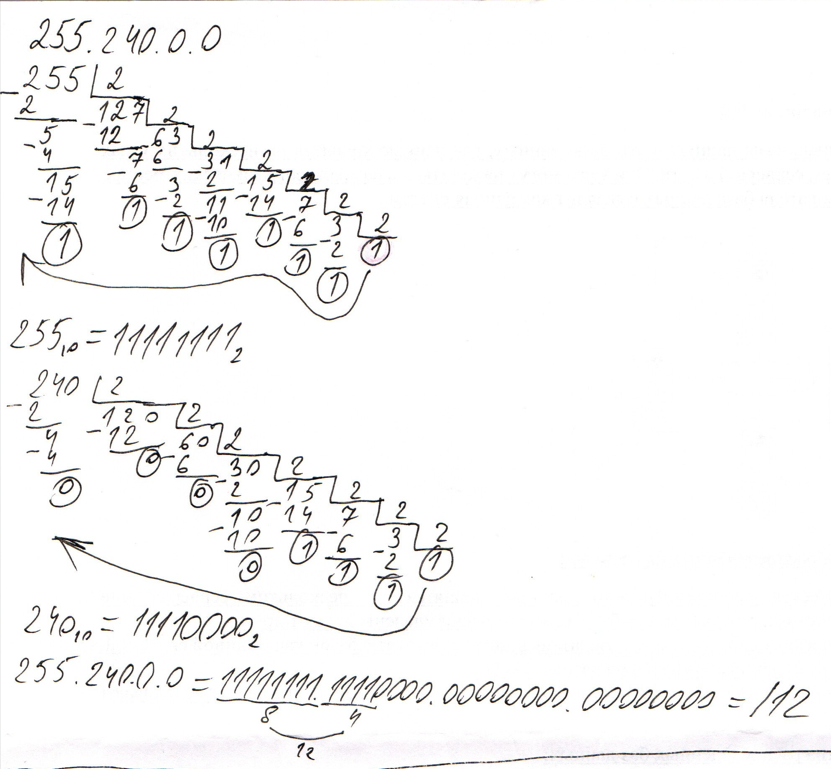 255.240.0.0
255 2
- 2 127 2
5 - 12 63 2
- 4 7 - 6 - 31 2
15 - 6 3 2 - 15 2
- 14 1 - 2 11 - 14 - 7 2
1 1 - 10 1 6 - 3 2
1 1 2 1
1
255₁₀ = 11111111₂
240 2
- 2 120 2
4 - 12 60 2
- 4 0 - 6 - 30 2
0 0 2 - 15 2
10 14 - 7 2
- 10 1 6 - 3 2
0 1 2 1
1
240₁₀ = 11110000₂
255.240.0.0 = 11111111.11110000.00000000.00000000 = /12
8 4
12